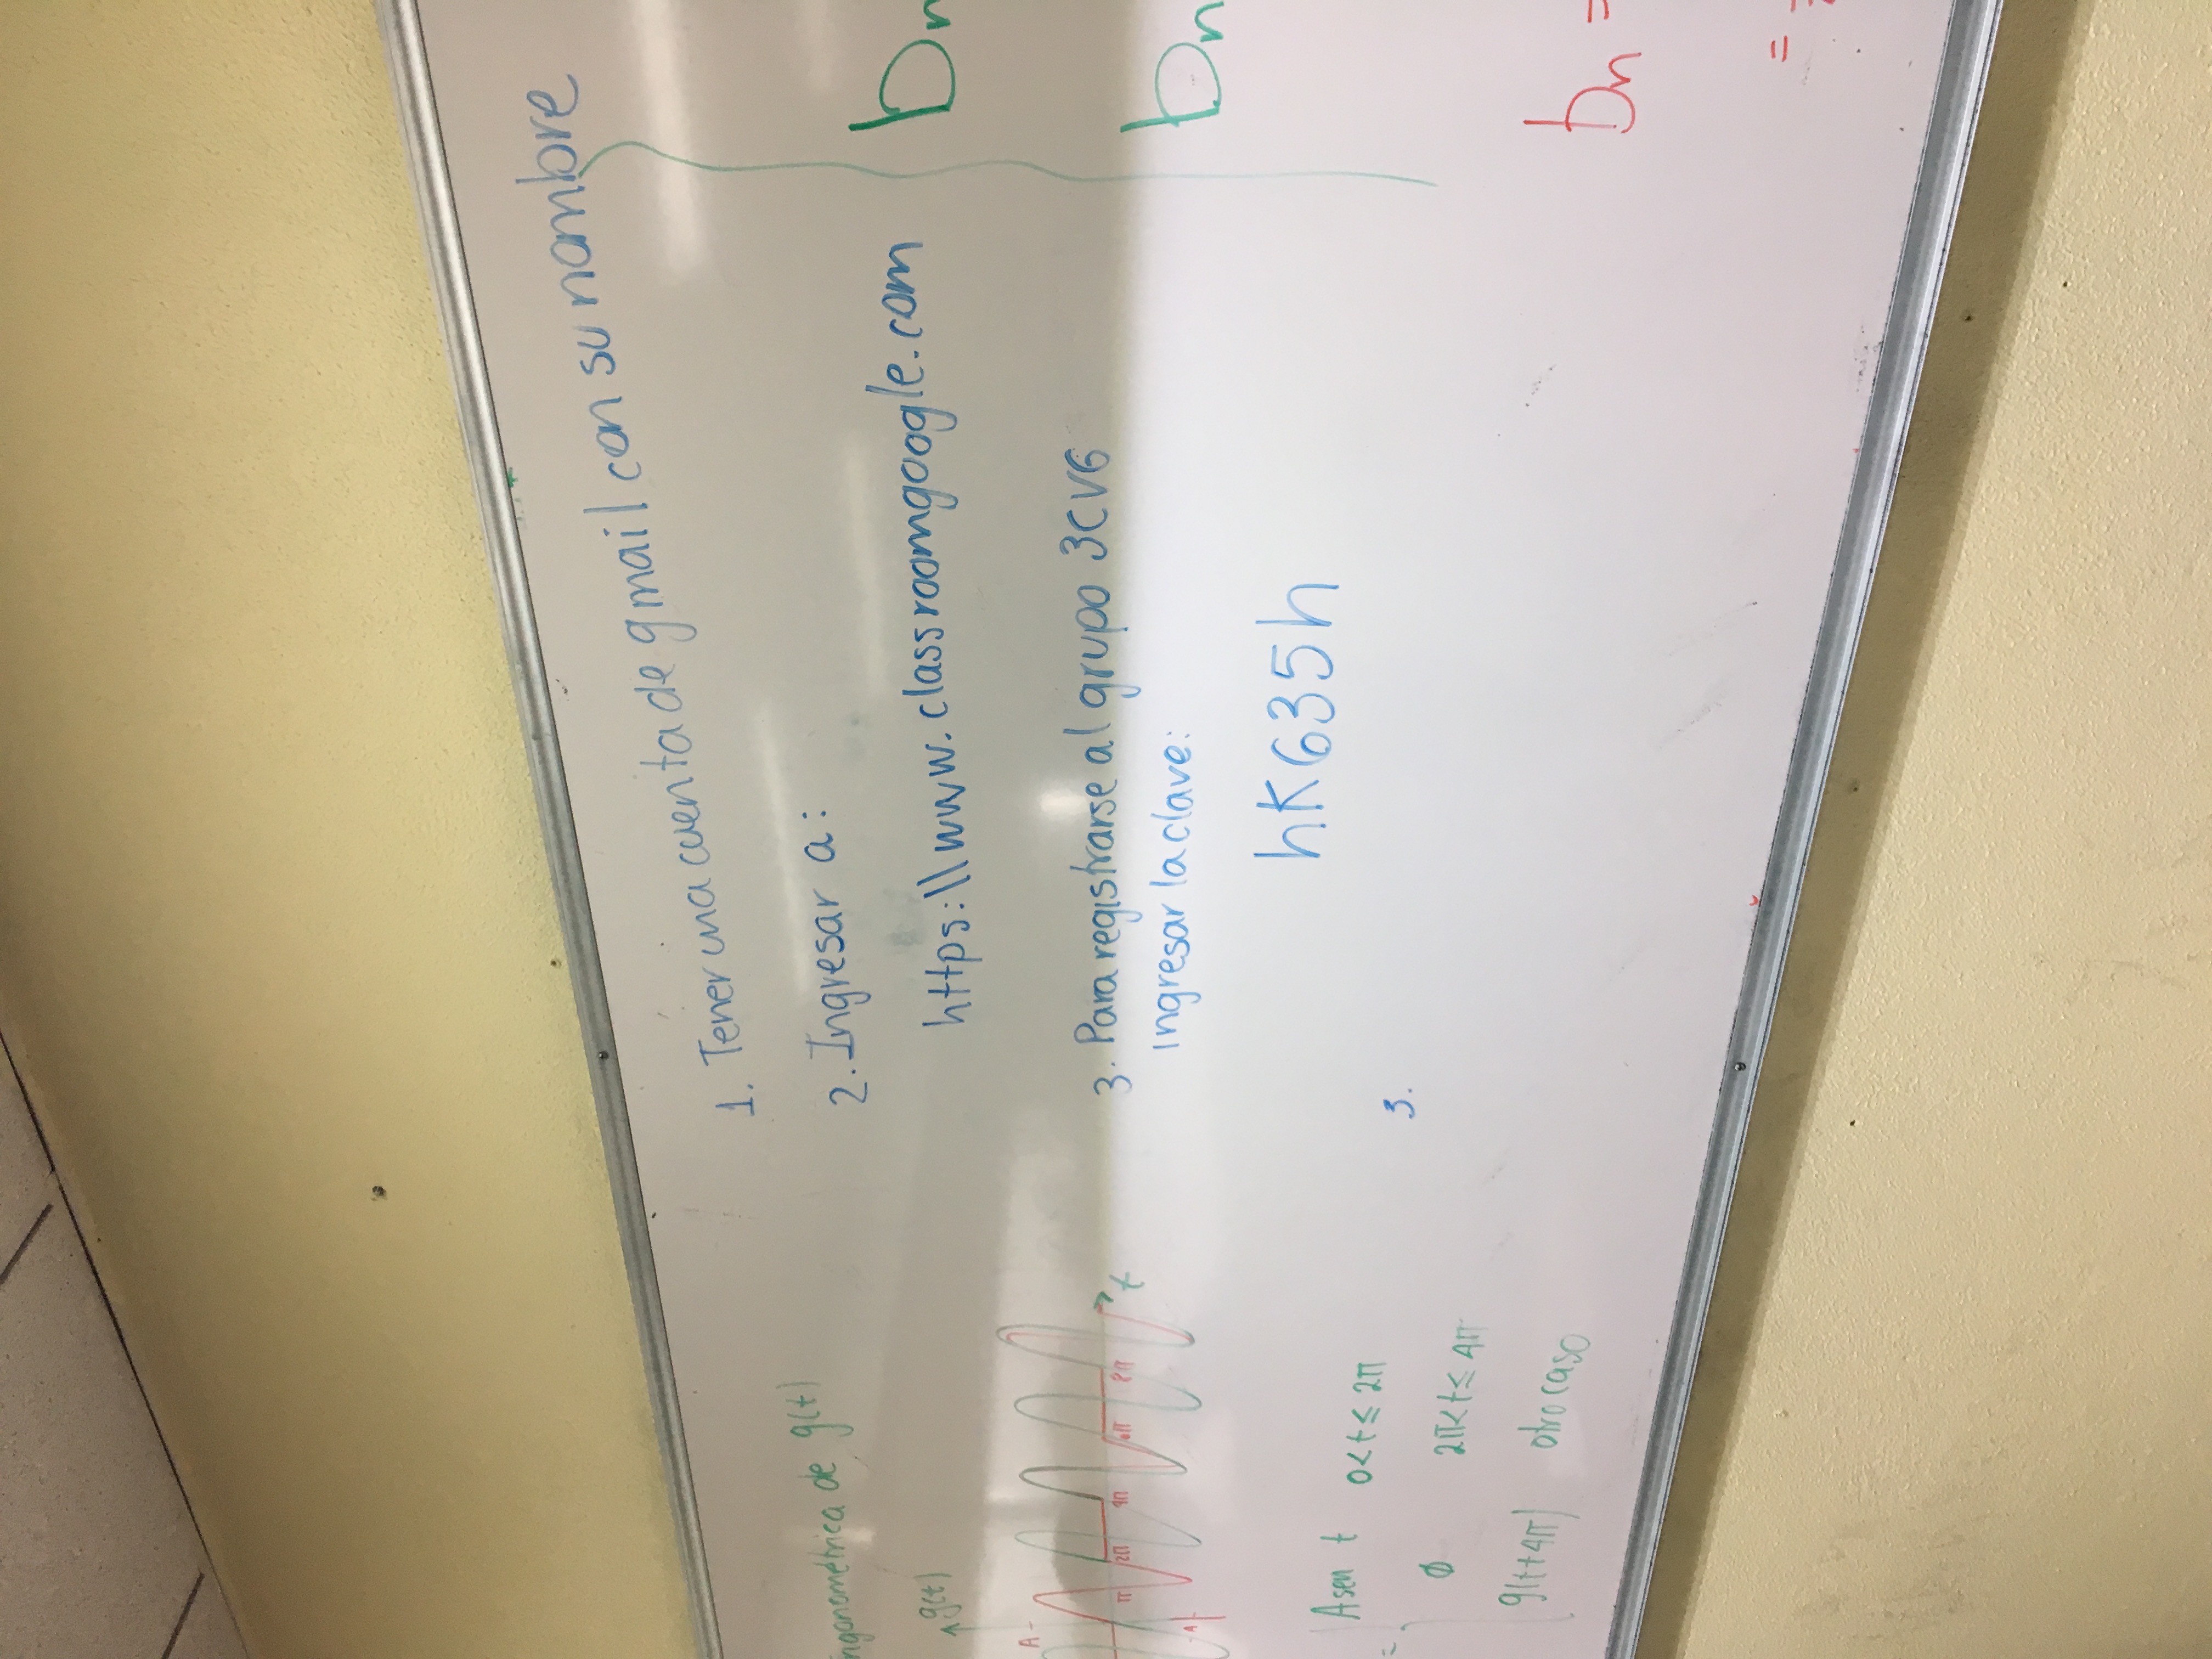 de g(t)
g(t)
A
π 2π 4π 6π 8π t
A sen t 0<t≤2π
=
ϕ 2π<t≤4π
g(t+4π) otro caso
1. Tener una cuenta de gmail con su nombre
2. Ingresar a:
https:\\www.classroomgoogle.com
3. Para registrarse al grupo 3CV6
ingresar la clave:
hK635h
3.
bn
bn
bn =
=